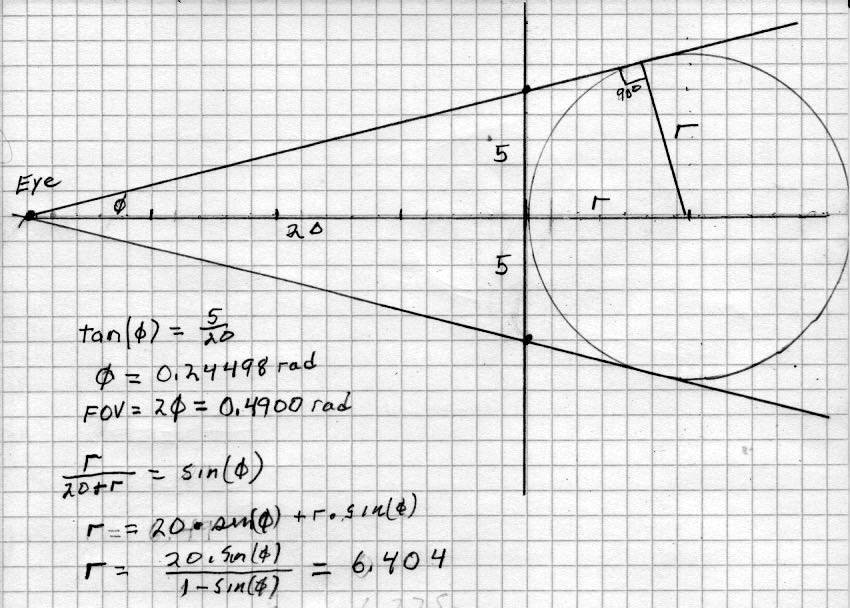 90°
5
r
Eye
ϕ
r
20
5
tan(ϕ) = 5/20
ϕ = 0.24498 rad
FOV = 2ϕ = 0.4900 rad
r/20+r = sin(ϕ)
r = 20 • sin(ϕ) + r • sin(ϕ)
r = 20 • sin(ϕ)/1 - sin(ϕ) = 6.404